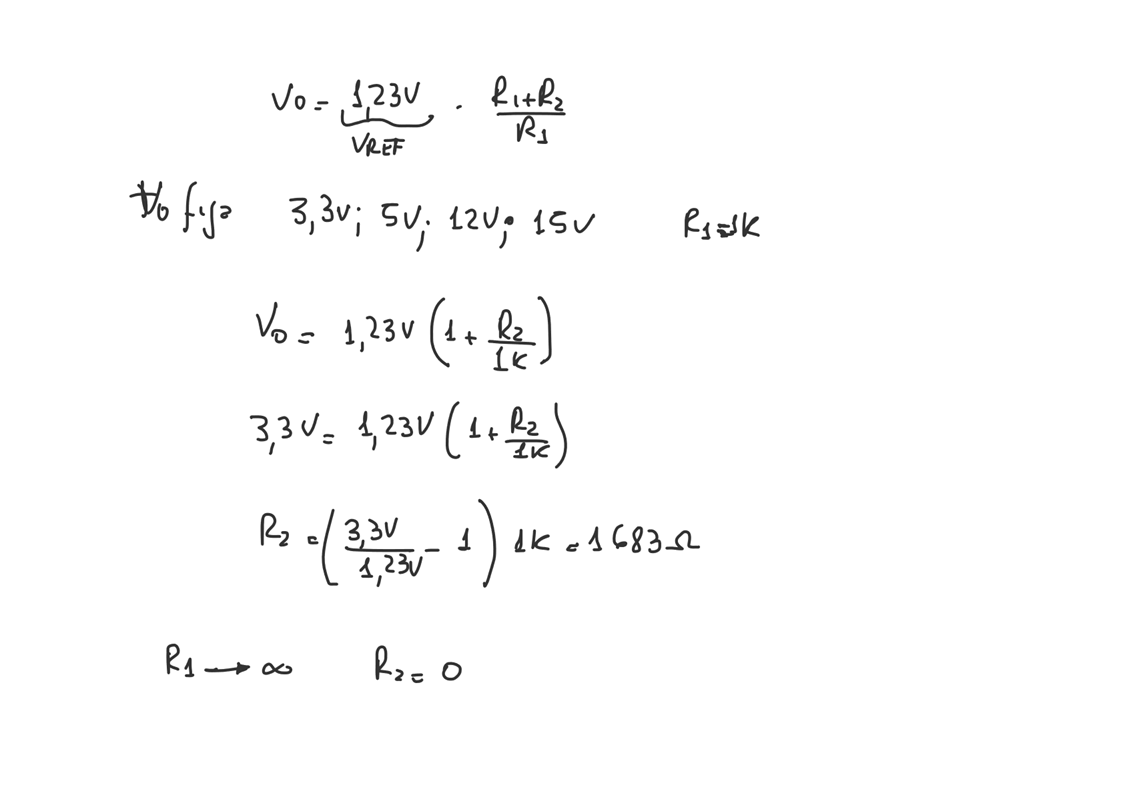 Vo = 1,23V · (R1+R2)/R1
VREF
Vo fija 3,3V; 5V; 12V; 15V R1=1K
Vo = 1,23V (1 + R2/1K)
3,3V = 1,23V (1 + R2/1K)
R2 = (3,3V/1,23V - 1) 1K = 1683Ω
R1 → ∞ R2 = 0